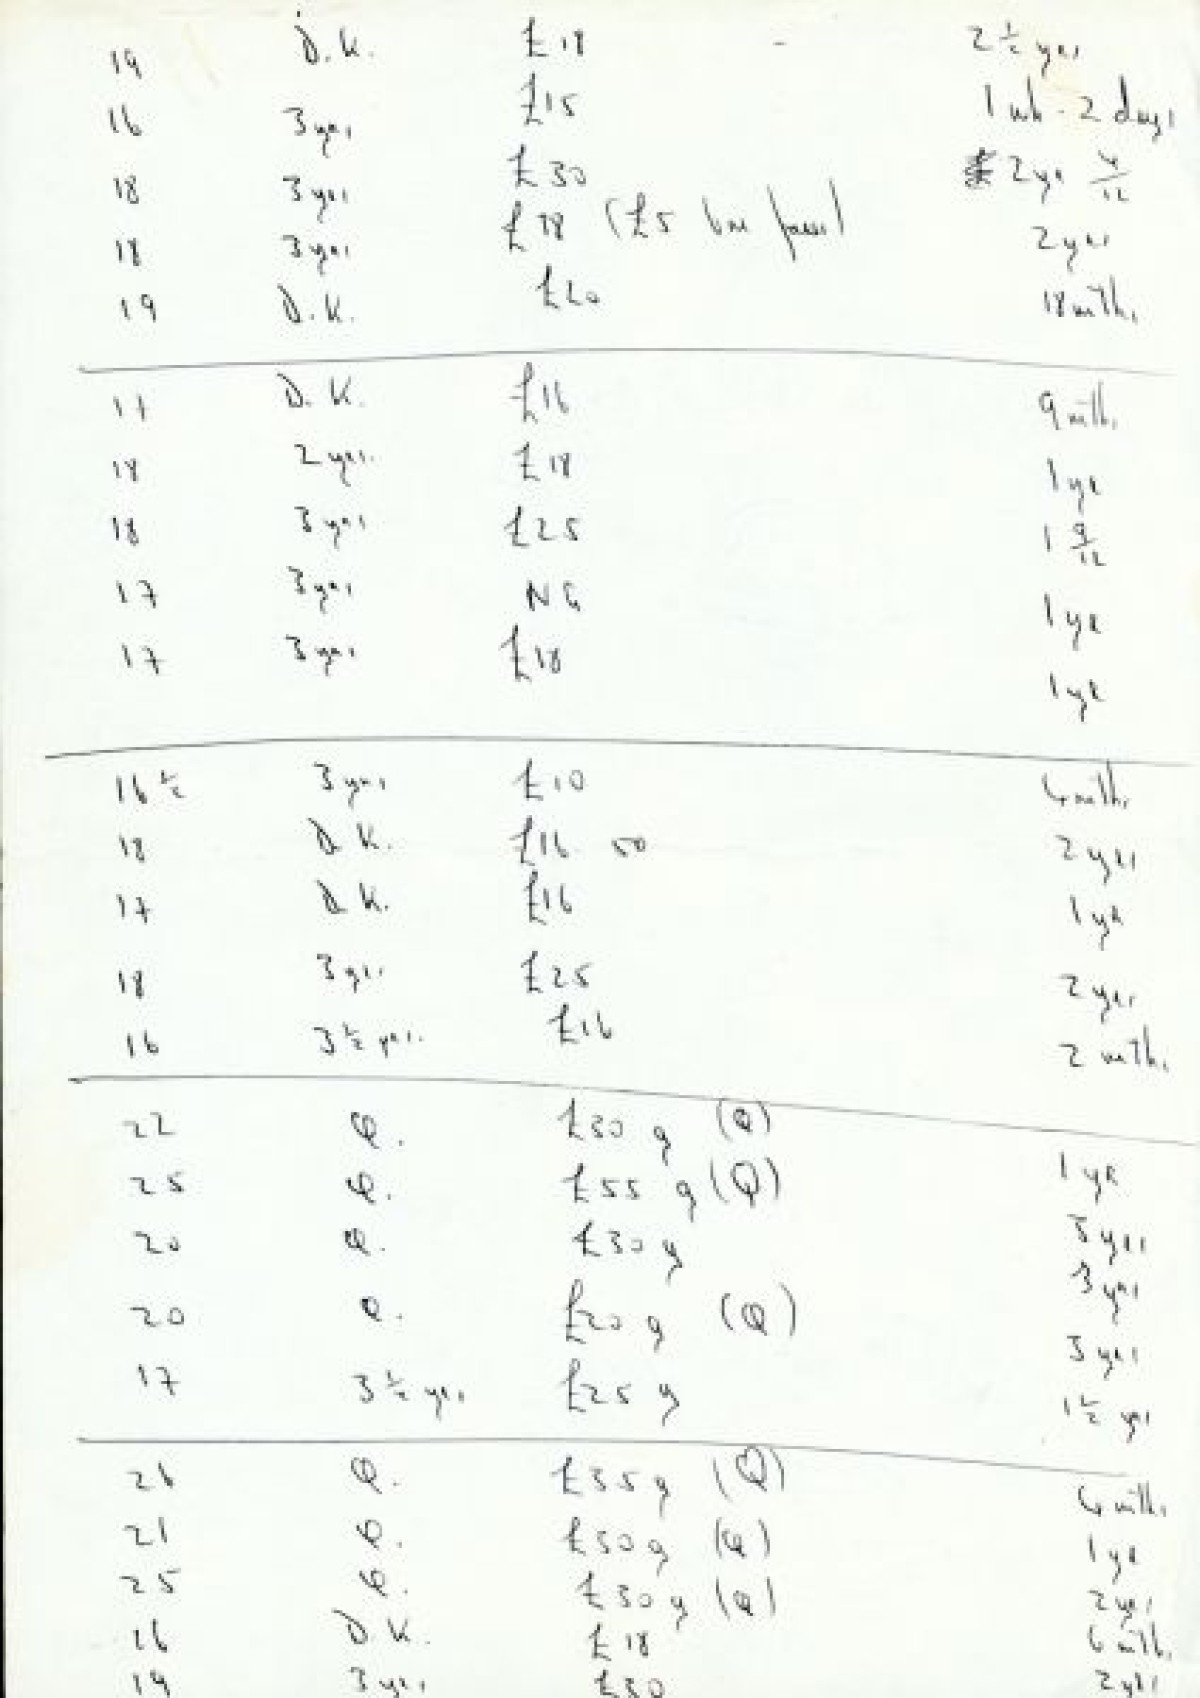 19 D.K. £18 - 2 ½ yrs
16 3 yrs £15 1 wk - 2 days
18 3 yrs £30 2 yr 4/12
18 3 yrs £28 (£5 bus pass) 2 yrs
19 D.K. £20 18 mths
17 D.K. £16 9 mths
18 2 yrs. £18 1 yr
18 3 yrs £25 1 9/12
17 3 yrs NG 1 yr
17 3 yrs £18 1 yr
16 ½ 3 yrs £10 6 mths
18 D K. £16 50 2 yrs
17 D K. £16 1 yr
18 3 yrs. £25 2 yrs
16 3 ½ yrs. £16 2 mths
22 Q. £30 g (Q) 1 yr
25 Q. £55 g (Q) 3 yrs
20 Q. £30 g 3 yrs
20 Q. £20 g (Q) 3 yrs
17 3 ½ yrs £25 g 1 ½ yrs
26 Q. £35 g (Q) 6 mths
21 Q. £50 g (Q) 1 yr
25 Q. £30 g (Q) 2 yrs
D.K. £18 6 mths
19 3 yrs 2 yrs